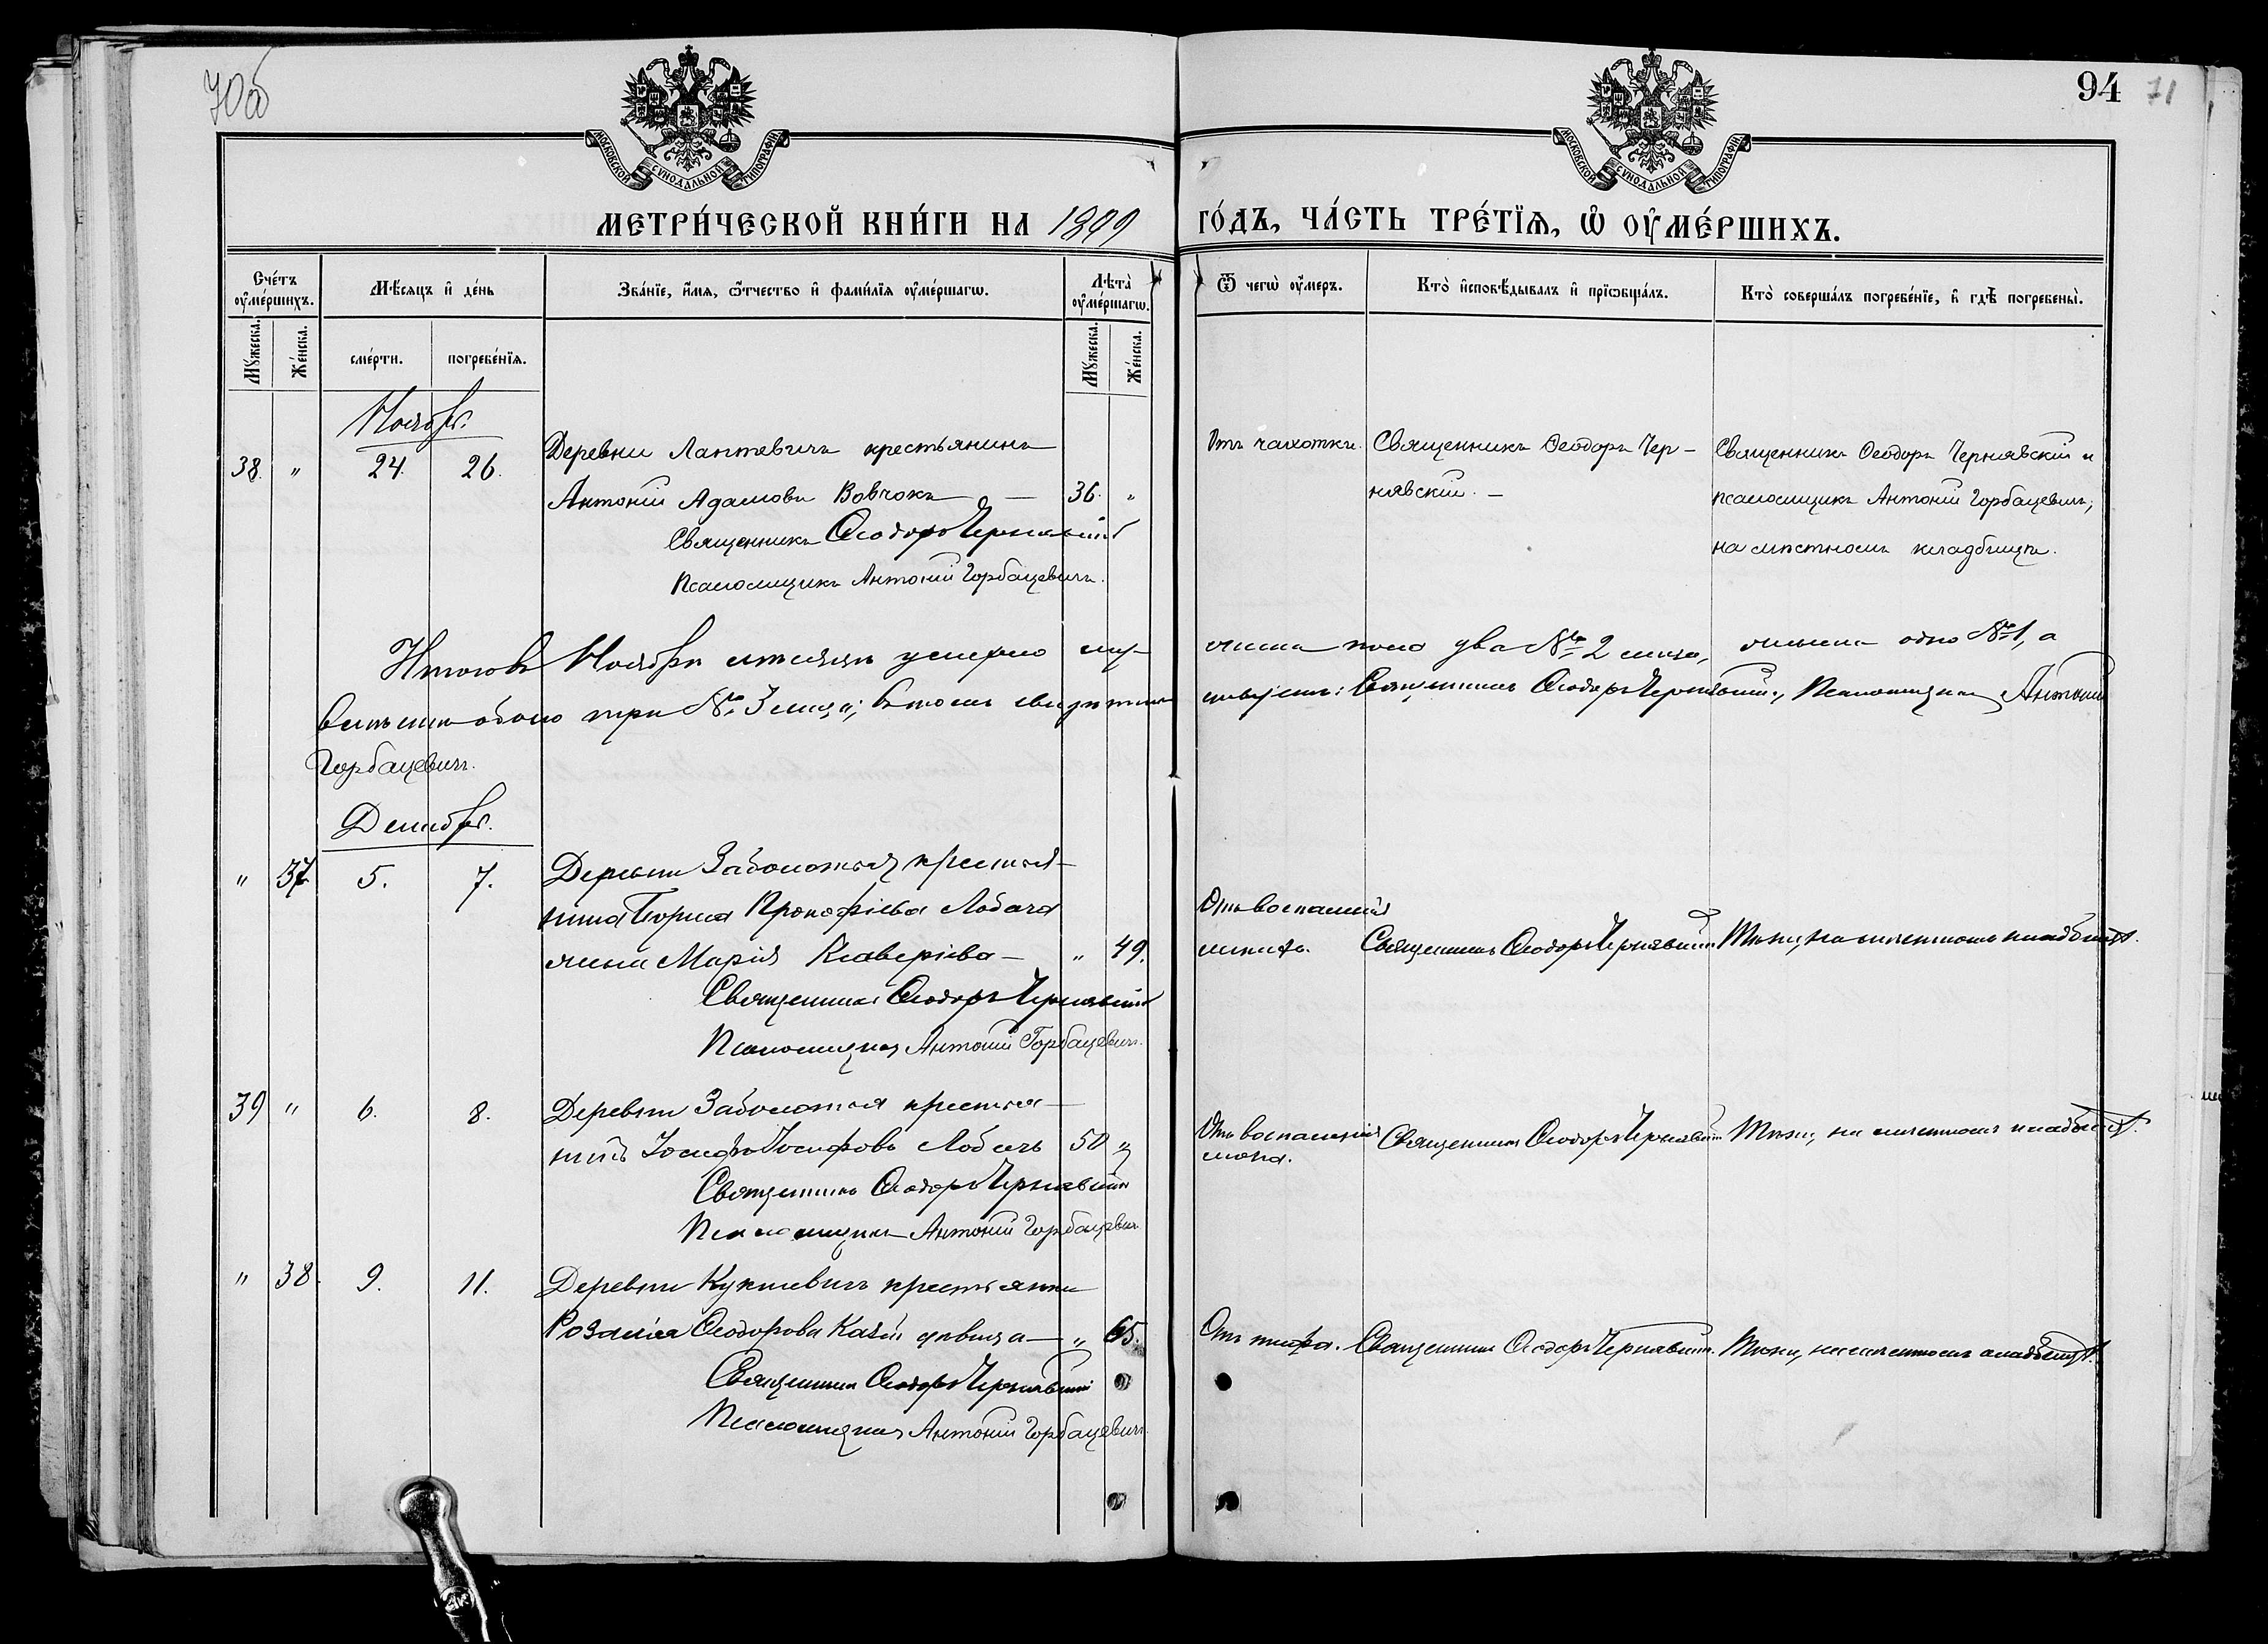 70об
94 71
МОСКОВСКОЙ СѴНОДАЛЬНОЙ ТИПОГРАФІИ.
МОСКОВСКОЙ СѴНОДАЛЬНОЙ ТИПОГРАФІИ.
МЕТРИ́ЧЕСКОЙ КНИ́ГИ НА 1899 ГО́ДЪ, ЧА́СТЬ ТРЕ́ТЇѦ, Ѡ ОУМЕ́РШИХЪ.
Сче́тъ оуме́ршихъ.
Мѣ́сяцъ и де́нь
Зва́нїе, и́мѧ, ѻ҆́тчество и фами́лїѧ оуме́ршагѡ.
Лѣта̀ оуме́ршагѡ.
Ѿ чегѡ̀ оу́меръ.
Кто̀ исповѣ́дывалъ и прїѡбща́лъ.
Кто̀ соверша́лъ погребе́нїе, и гдѣ̀ погребены̀.
Му́жеска.
Же́нска.
сме́рти.
погребе́нїѧ.
Му́жеска.
Же́нска.
Ноябрь.
38. " 24. 26. Деревни Лаптевичъ крестьянинъ
Антоній Адамовъ Вовчокъ — 36. "
Священникъ Ѳеодоръ Чернявскій
Псаломщикъ Антоній Горбацевичъ.
Отъ чахотки.
Священникъ Ѳеодоръ Чер-
нявскій. —
Священникъ Ѳеодоръ Чернявскій и
псаломщикъ Антоній Горбацевичъ,
на мѣстномъ кладбищѣ.
Итого въ Ноябрѣ мѣсяцѣ умерло му- жеска пола два № 2 лица, женска одно № 1, а
всего обоего три № 3 лица; въ томъ свидѣтель- ствуемъ: Священникъ Ѳеодоръ Чернявскій, Псаломщикъ Антоній
Горбацевичъ.
Декабрь.
" 37 5. 7. Деревни Заболотья крестья-
нина Прокофіева Лобача
жена Марія Ксаверіева — " 49.
Священникъ Ѳеодоръ Чернявскій
Псаломщикъ Антоній Горбацевичъ.
Отъ воспаленія
легкихъ.
Священникъ Ѳеодоръ Чернявскій
Тѣже, на мѣстномъ кладбищѣ.
39 " 6. 8. Деревни Заболотья крестья-
нинъ Іосифъ Іосифовъ Лобачъ 50 "
Священникъ Ѳеодоръ Чернявскій
Псаломщикъ Антоній Горбацевичъ
Отъ воспаленія
Священникъ Ѳеодоръ Чернявскій
Тѣже, на мѣстномъ кладбищѣ.
" 38. 9. 11. Деревни Кукшевичъ крестьянка
Розалія Ѳеодорова девица — " 65.
Священникъ Ѳеодоръ Чернявскій
Псаломщикъ Антоній Горбацевичъ.
Отъ тифа.
Священникъ Ѳеодоръ Чернявскій.
Тѣже, на мѣстномъ кладбищѣ.